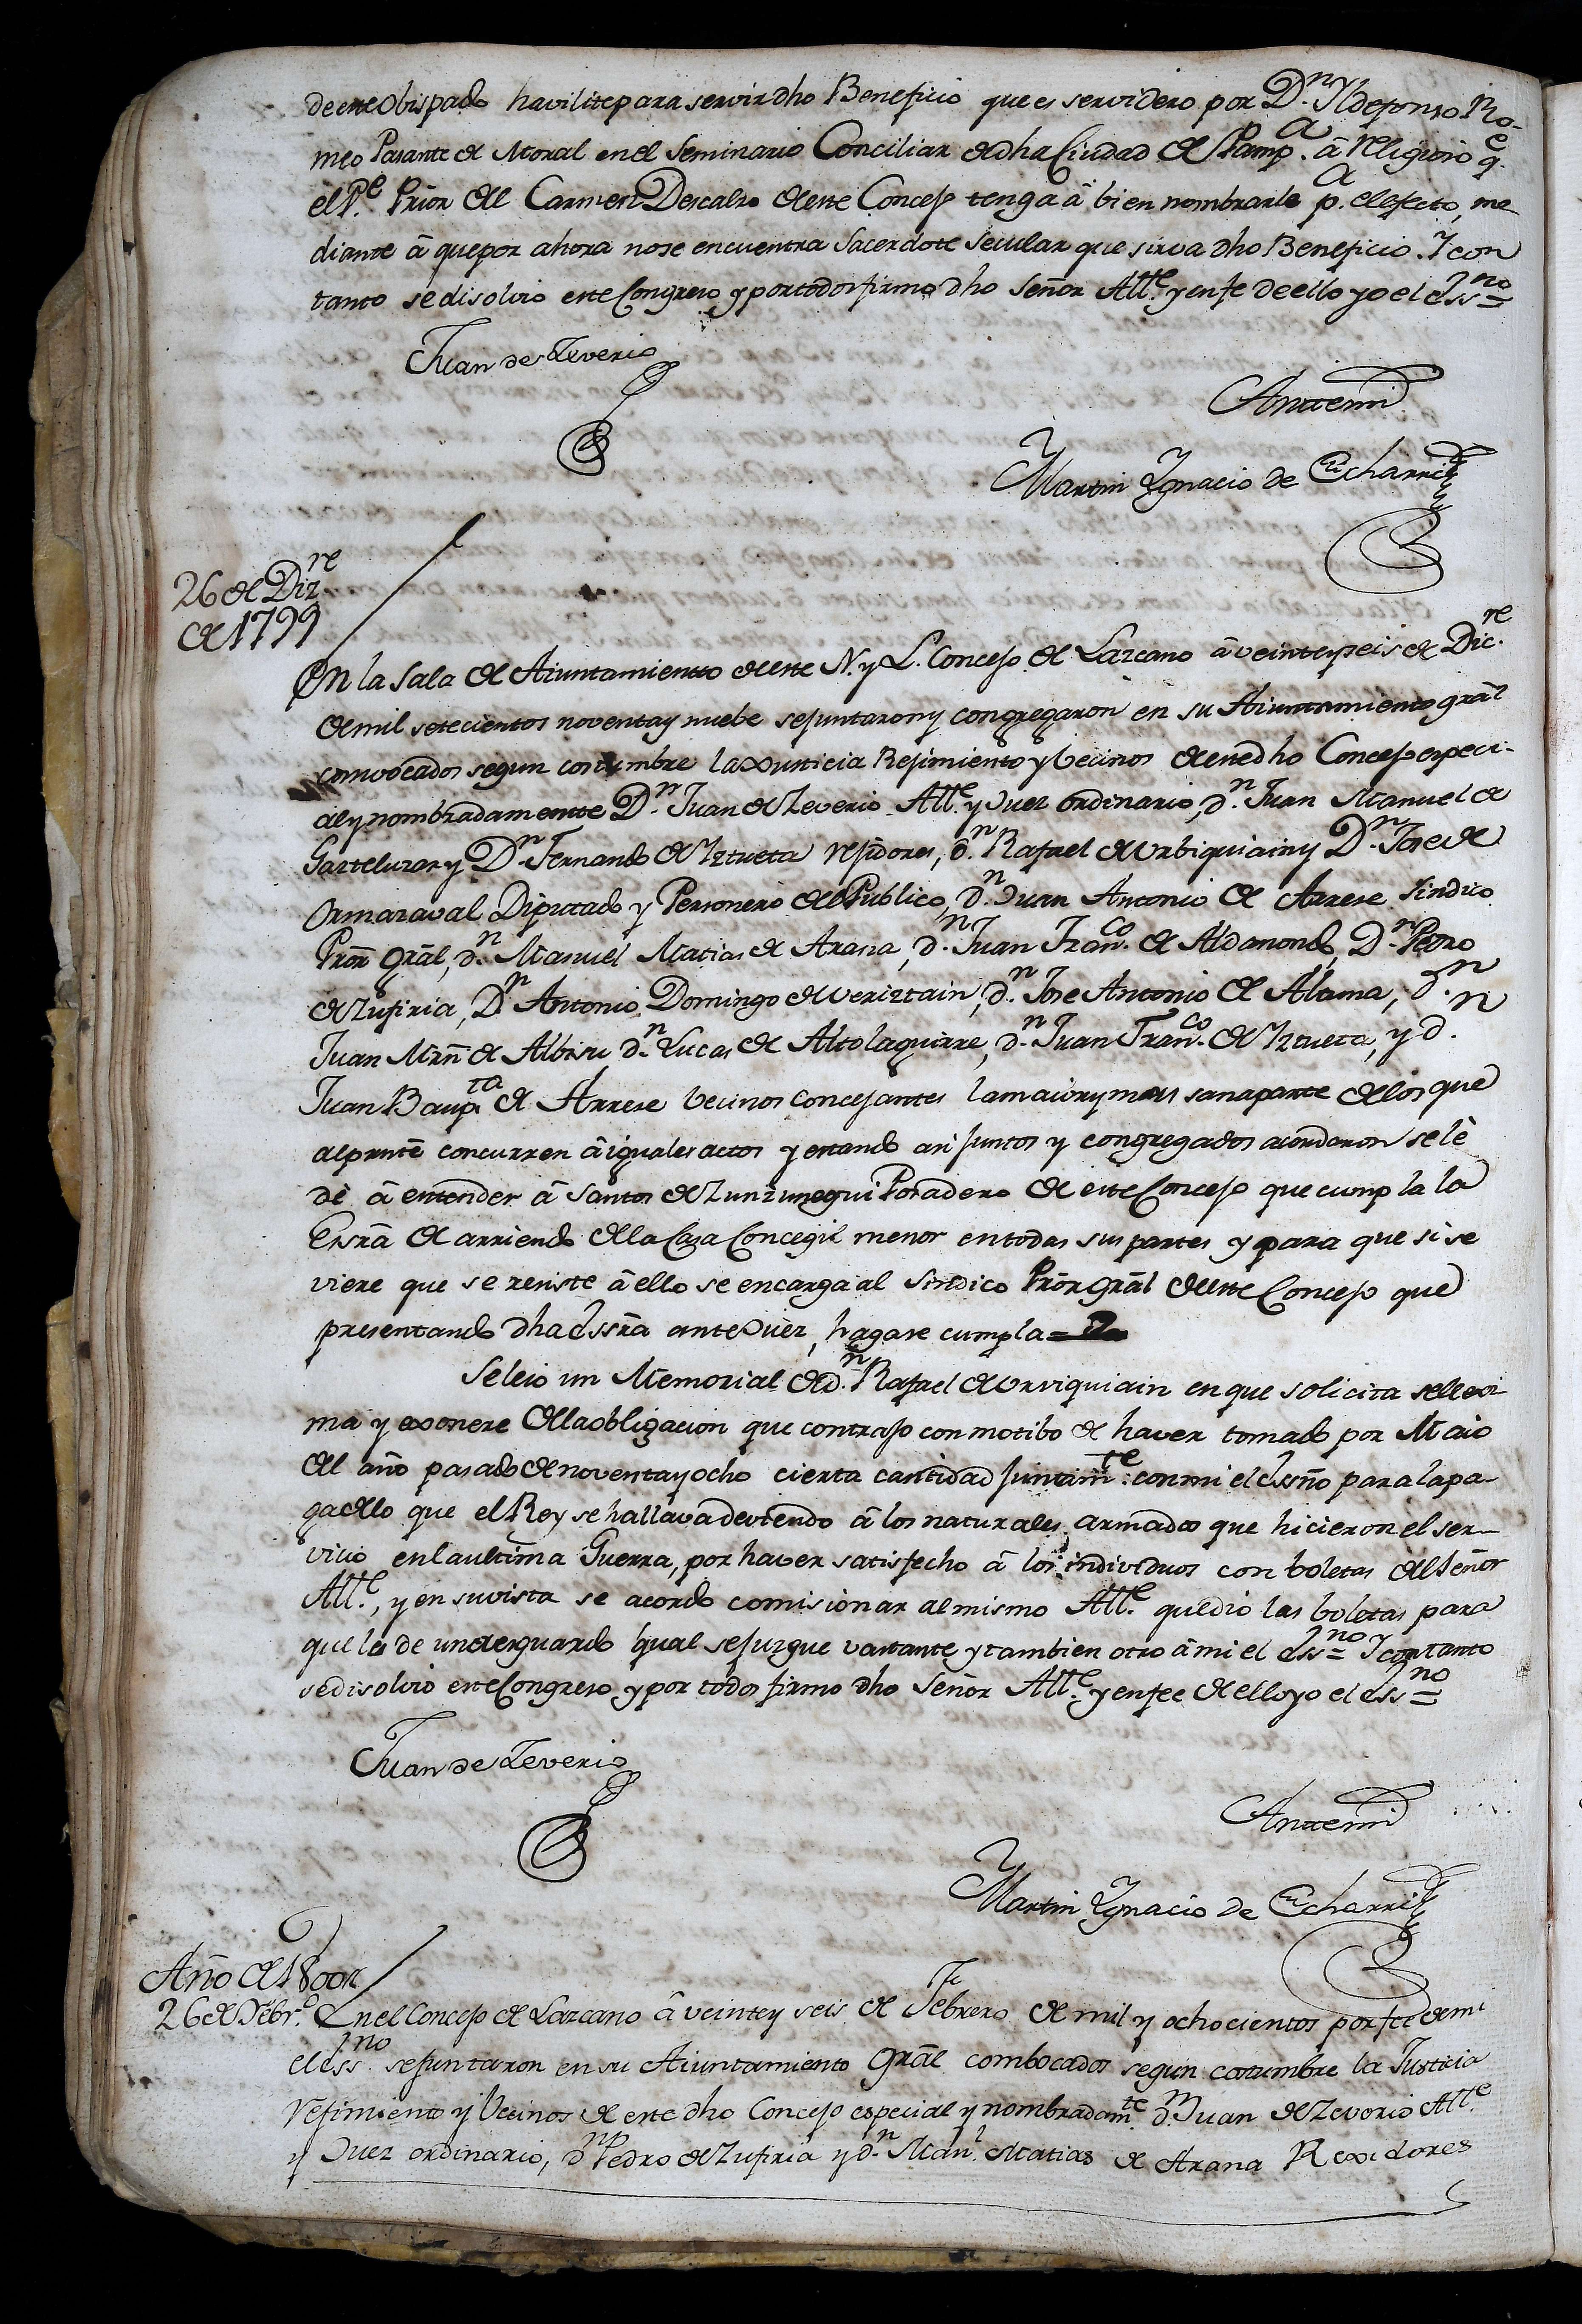 de este Obispado havilite para servir dho Beneficio que es servidero por Dn. Yldefonso Ro-
meo Pasante de Moral en el Seminario Conciliar de dha Ciudad de Pampa. â religioso qe.
el Pe. Prior del Carmen Descalzo de este Concejo tenga â bien nombrarle pa. el efecto, me
diante â que por ahora no se encuentra Sacerdote Secular que sirva dho Beneficio. Y con
tanto se disolvio este Congreso y por todos firmo dho Señor Alle. y en fe de ello yo el Essno =
Juan de Zeverio
Antemi
Martin Ygnacio de Echarri
26 de Dizre
de 1799
En la Sala de Aiuntamientto de este N. y L. Concejo de Lazcano â veinte y seis de Dicre.
de mil setecientos noventa y nuebe se juntaron y congregaron en su Aiuntamiento grãl
convocados segun costumbre la Justicia Rejimiento y Vecinos de este dho Concejo especi-
al y nombradamentte Dn. Juan de Zeverio Alle. y Juez ordinario, dn. Juan Manuel de
Garteluzar y Dn. Fernando de Yztueta rejidores, dn. Rafael de Urbiquiain y Dn. Jose de
Ormazaval Diputado y Personero del Publico, dn. Juan Antonio de Arrese Sindico
Prõr Grãl, dn. Manuel Matias de Arana, dn. Juan Franco. de Aldamondo, Dn. Pedro
de Zufiria, Dn. Antonio Domingo de Veriztain, dn. Jose Antonio de Alzuma, dn.
Juan Mrñ de Albisu dn. Lucas de Altolaguirre, dn. Juan Franco. de Yztueta, y dn.
Juan Baupta de Arrese Vecinos concejantes la maior y mas sana parte de los que
al presntẽ concurren â iguales actos y estando asi juntos y congregados acordaron se lè
dè â entender â Santos de Zunzunegui Posadero de este Concejo que cumpla la
Essrã de arriendo de la Casa Concegil menor en todas sus partes y para que si se
viere que se resiste â ello se encarga al Sindico Prõr grãl de este Concejo que
presentando dha Essrã ante Juez, haga se cumpla =
Se leio un Memorial de dn. Rafael de Urviquiain en que solicita se le exi
ma y exonere de la obligacion que contrajo con motibo de haver tomado por Maio
del año pasado de noventa y ocho cierta cantidad juntamte. con mi el Essño para la pa-
ga de lo que el Rey se hallava deviendo â los naturales armados que hicieron el ser-
vicio en la ultima Guerra, por haver satisfecho â los individuos con boletas del Señor
Alle., y en su vista se acordo comisionar al mismo Alle. que dio las boletas para
que les de un resguardo qual se juzgue vastante y tambien otro â mi el Essno = Y con tanto
se disolvio este Congreso y por todos firmo dho Señor Alle. y en fee de ello yo el Essno =
Juan de Zeverio
Antemi
Martin Ygnacio de Echarri
Año de 1800
26 de Febro.
En el Concejo de Lazcano â veinte y seis de Febrero de mil y ochocientos por fee de mi
el Essno. se juntaron en su Aiuntamiento Grãl combocados segun costumbre la Justicia
Rejimiento y Vecinos de este dho Concejo especial y nombradamte. dn. Juan de Zeverio Alle.
y Juez ordinario, dn. Pedro de Zufiria y dn. Manl. Matias de Arana Rexidores